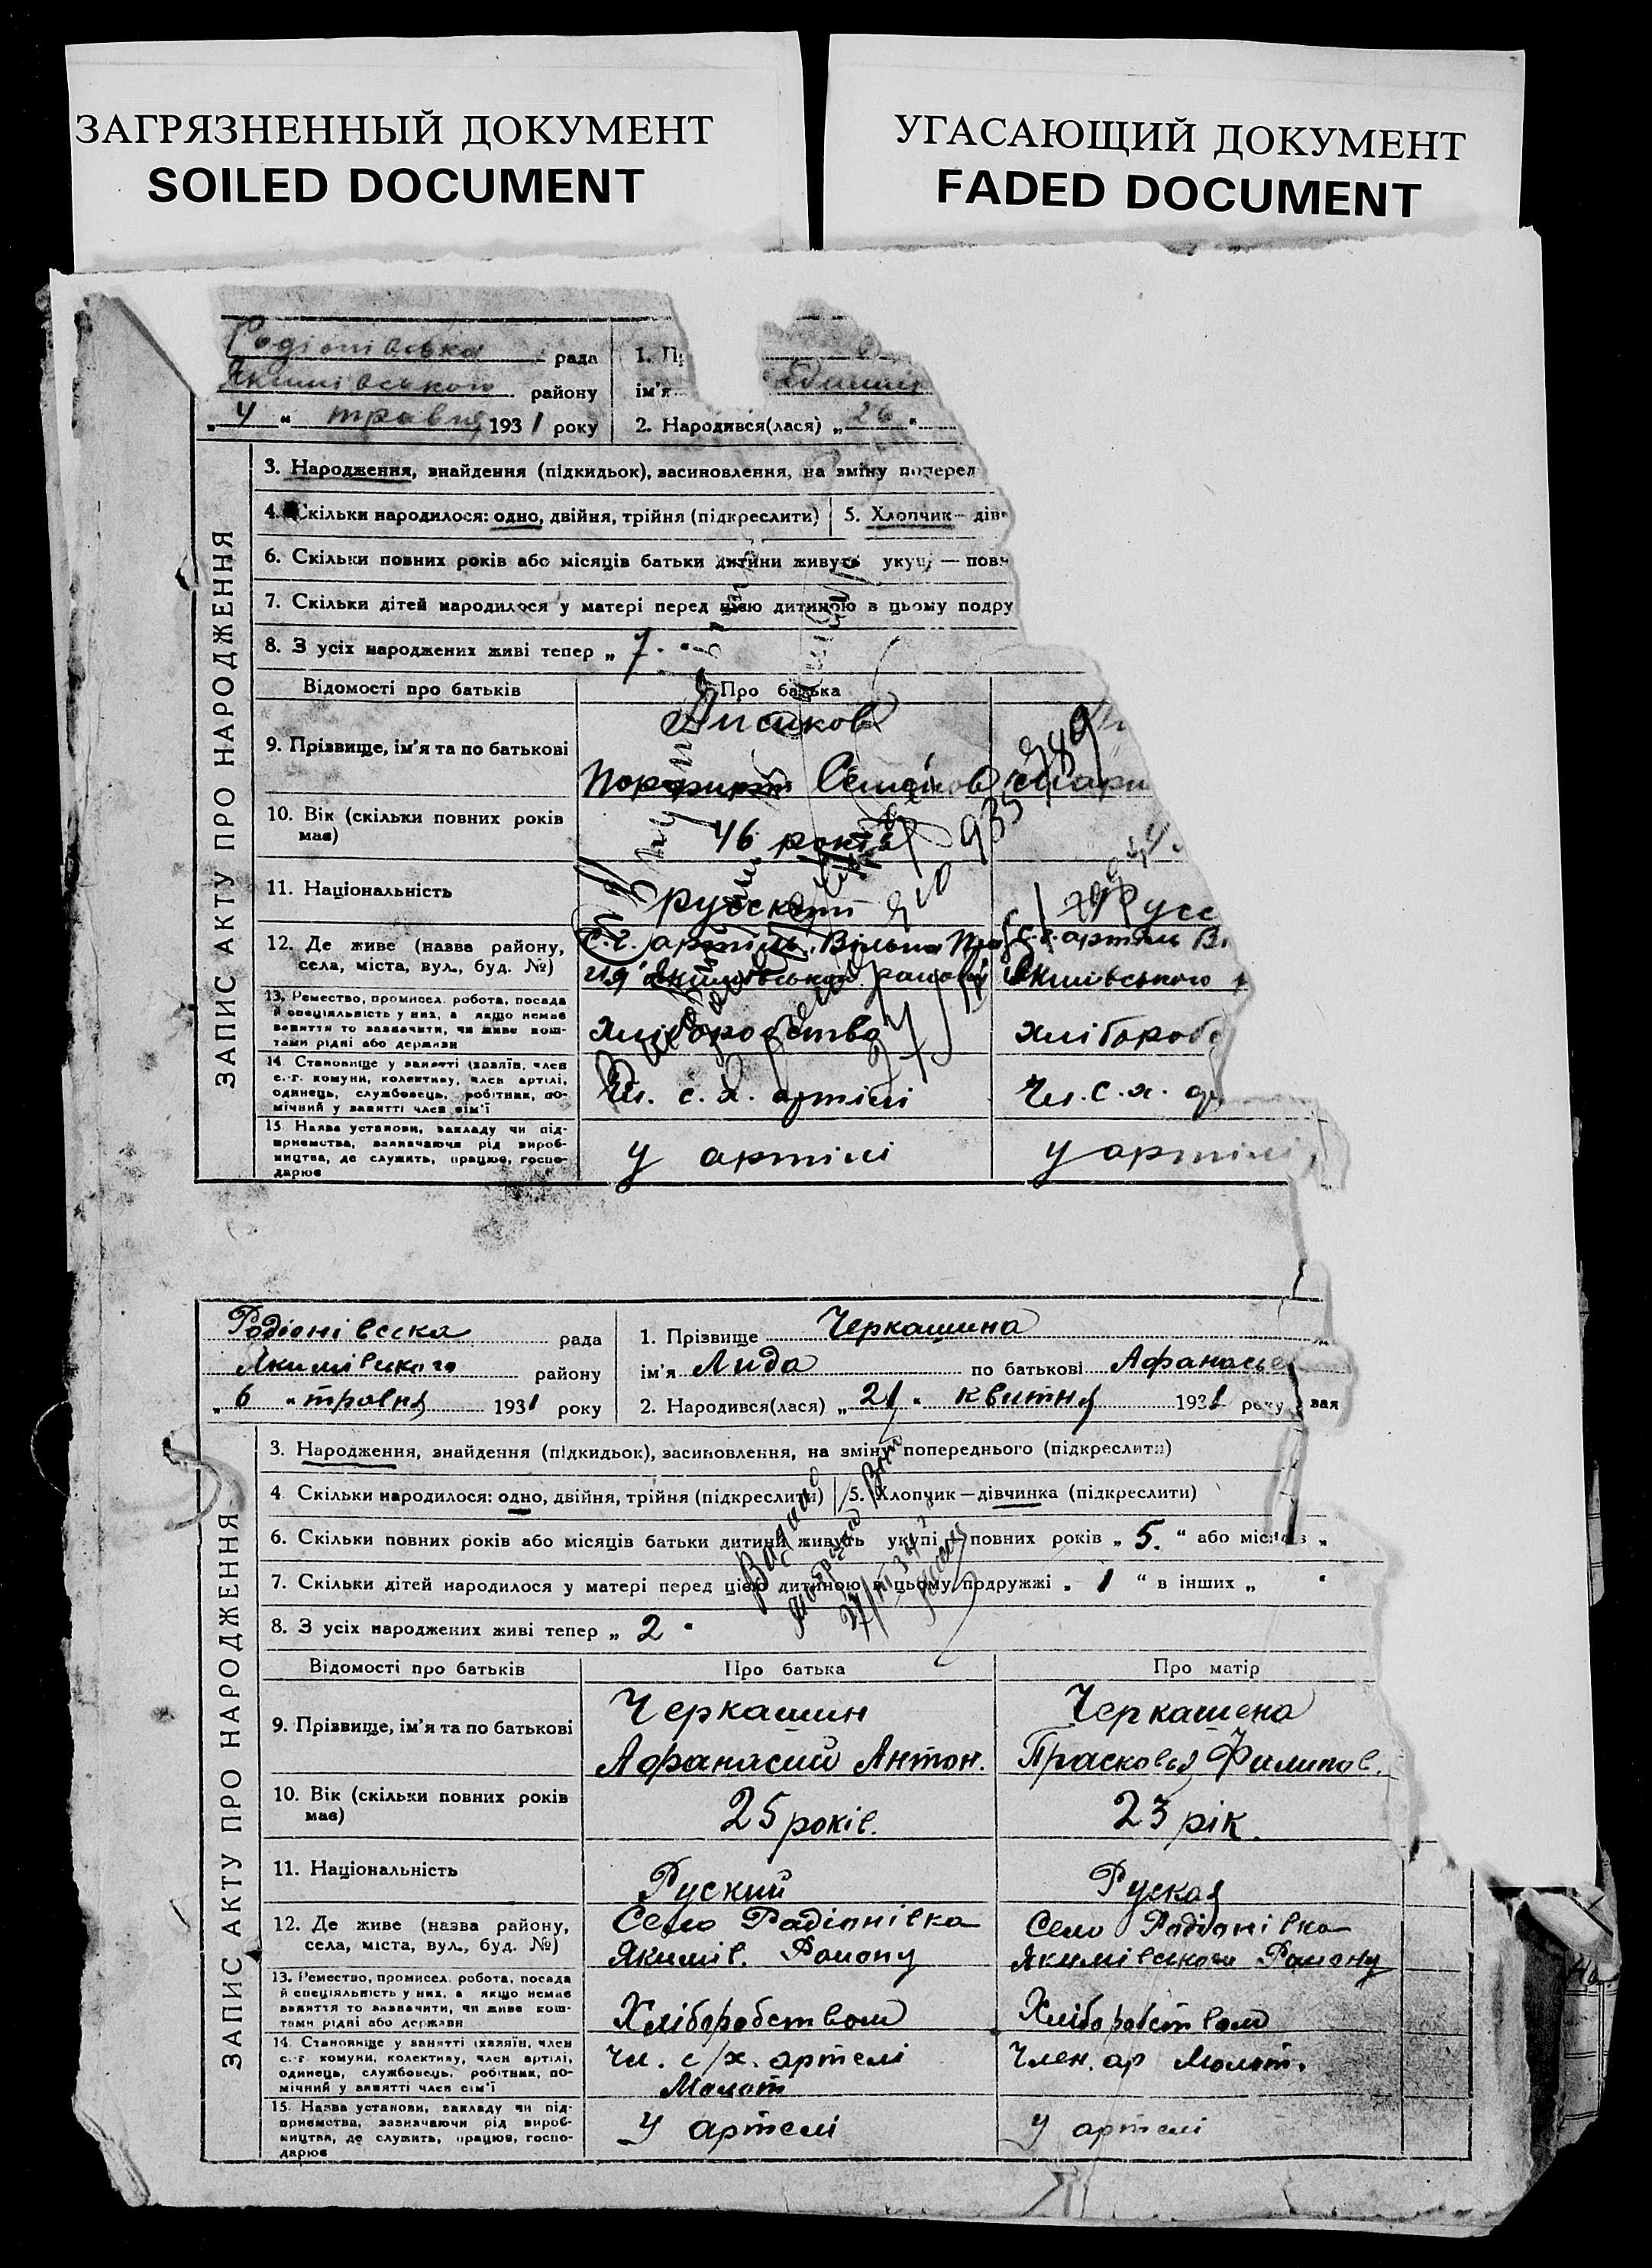 ЗАГРЯЗНЕННЫЙ ДОКУМЕНТ
SOILED DOCUMENT
УГАСАЮЩИЙ ДОКУМЕНТ
FADED DOCUMENT
ЗАПИС АКТУ ПРО НАРОДЖЕННЯ
Родіонівська рада
Якимівського району
„ 4 “ травня 1931 року
1. Пр
ім'я
2. Народився(лася) „ 26 “
3. Народження, знайдення (підкидьок), засиновлення, на зміну поперед
4. Скільки народилося: одно, двійня, трійня (підкреслити)
5. Хлопчик — дів
6. Скільки повних років або місяців батьки дитини живуть укупі — повн
7. Скільки дітей народилося у матері перед цією дитиною в цьому подру
8. З усіх народжених живі тепер „ 7. “
Відомості про батьків
Про батька
9. Прізвище, ім'я та по батькові
Семенов
10. Вік (скільки повних років має)
46 років
11. Національність
русский
Русс
12. Де живе (назва району, села, міста, вул., буд. №)
артіль Вільна
Якимівського району
артіль
Якимівського
13. Ремество, промисел. робота, посада й спеціяльність у них, а якщо немає заняття то зазначити, чи живе коштами рідні або держави
хліборобство
хлібороб
14. Становище у занятті (хазяїн, член с.-г. комуни, колективу, член артілі, одинець, службовець, робітник, помічний у занятті член сім'ї
Чл. с. х. артілі
Чл. с. х. ар
15. Назва установи, закладу чи підприємства, зазначаючи рід виробництва, де служить, працює, господарює
у артілі
у артілі
ЗАПИС АКТУ ПРО НАРОДЖЕННЯ
Родіонівська рада
Якимівського району
„ 6 “ травня 1931 року
1. Прізвище Черкашина
ім'я Лида по батькові Афанасье
2. Народився(лася) „ 21 “ квитня 1931 року
вая
3. Народження, знайдення (підкидьок), засиновлення, на зміну попереднього (підкреслити)
4. Скільки народилося: одно, двійня, трійня (підкреслити)
5. Хлопчик — дівчинка (підкреслити)
6. Скільки повних років або місяців батьки дитини живуть укупі — повних років „ 5. “ або місяців „
7. Скільки дітей народилося у матері перед цією дитиною в цьому подружжі „ 1 “ в інших „ “
8. З усіх народжених живі тепер „ 2 “
Відомості про батьків
Про батька
Про матір
9. Прізвище, ім'я та по батькові
Черкашин
Афанасий Антон.
Черкашена
Прасковья Филипов.
10. Вік (скільки повних років має)
25 років.
23 рік.
11. Національність
Руский
Руская
12. Де живе (назва району, села, міста, вул., буд. №)
Село Радіонівка
Якимів. Району
Село Радіонівка
Якимівського Району
13. Ремество, промисел. робота, посада й спеціяльність у них, а якщо немає заняття то зазначити, чи живе коштами рідні або держави
Хліборобством
Хліборобством
14. Становище у занятті (хазяїн, член с.-г. комуни, колективу, член артілі, одинець, службовець, робітник, помічний у занятті член сім'ї
Чл. с/х. артелі
Молот
Член. ар Молот.
15. Назва установи, закладу чи підприємства, зазначаючи рід виробництва, де служить, працює, господарює
У артелі
У артелі